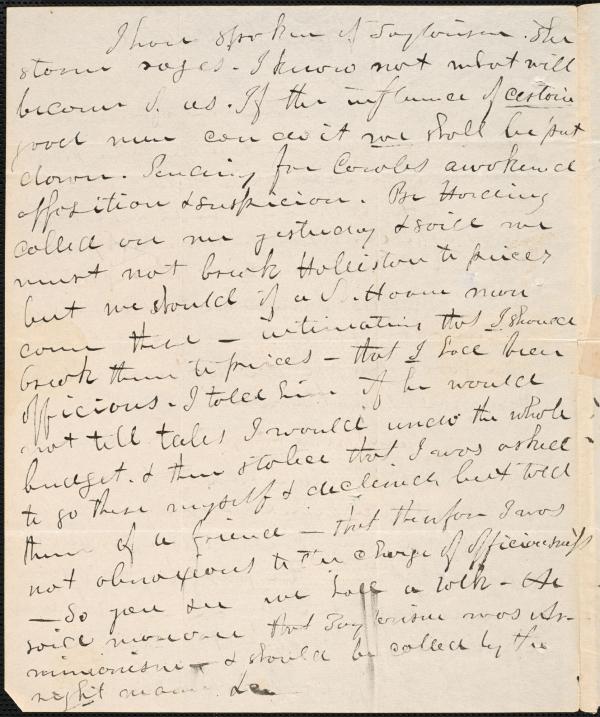 I have spoken of Taylorism. The
storm rages. I know not what will
become of us. If the influence of certain
good men can do it we shall be put
down. Sending for Cowles awakened
opposition & suspicion. Br Harding
called on me yesterday & said we
must not break Holliston to pieces
but we should if a S. Hoarn man
come there — intimating that I should
break them to pieces — that I had been
officious. I told him if he would
not tell tales I would undo the whole
budget. & then stated that I was asked
to go there myself & declined but told
them of a friend — that therefore I was
not obnoxious to the charge of officiousness
— So you see we had a talk — He
said moreover that Taylorism was Ar-
minianism — & should be called by the
right name &c